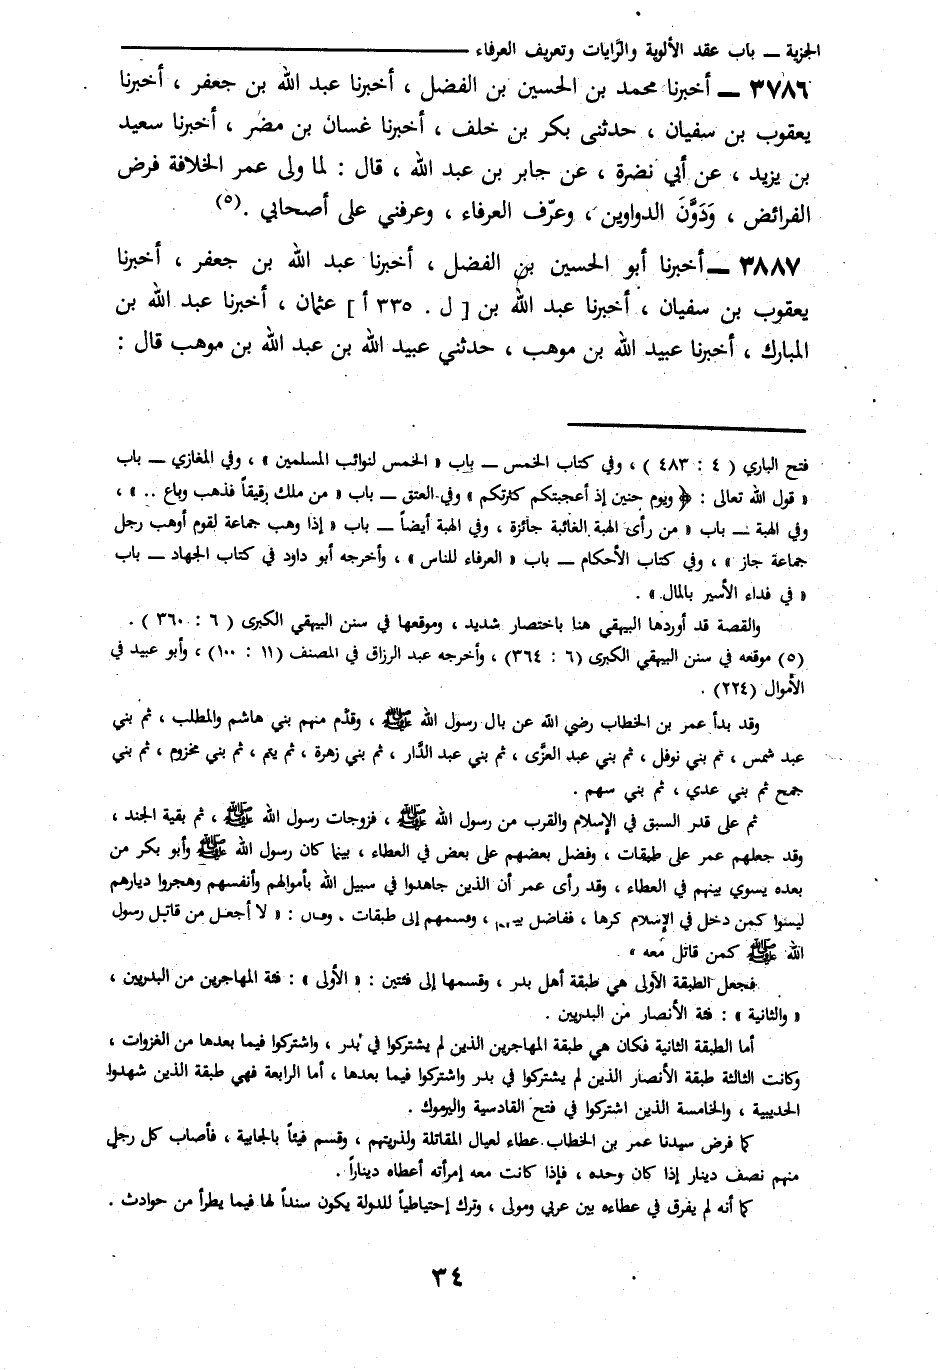 الجزية ــ باب عقد الألوية والرَّايات وتعريف العرفاء
٣٧٨٦ ــ أخبرنا محمد بن الحسين بن الفضل ، أخبرنا عبد الله بن جعفر ، أخبرنا
يعقوب بن سفيان ، حدثنى بكر بن خلف ، أخبرنا غسان بن مضر ، أخبرنا سعيد
بن يزيد ، عن أبي نضرة ، عن جابر بن عبد الله ، قال : لما ولى عمر الخلافة فرض
الفرائض ، وَدَوَّنَ الدواوين ، وعرّف العرفاء ، وعرفني على أصحابي .(٥)
٣٨٨٧ ــ أخبرنا أبو الحسين بن الفضل ، أخبرنا عبد الله بن جعفر ، أخبرنا
يعقوب بن سفيان ، أخبرنا عبد الله بن [ ل . ٣٣٥ أ ] عثمان ، أخبرنا عبد الله بن
المبارك ، أخبرنا عبيد الله بن موهب ، حدثني عبيد الله بن عبد الله بن موهب قال :
فتح الباري ( ٤ : ٤٨٣ ) ، وفي كتاب الخمس ــ باب « الخمس لنوائب المسلمين » ، وفي المغازي ــ باب
« قول الله تعالى : ﴿ ويوم حنين إذ أعجبتكم كثرتكم » وفي العتق ــ باب « من ملك رقيقاً فذهب وباع .. » ،
وفي الهبة ــ باب « من رأى الهبة الغائبة جائزة ، وفي الهبة أيضاً ــ باب « إذا وهب جماعة لقوم أوهب رجل
جماعة جاز » ، وفي كتاب الأحكام ــ باب « العرفاء للناس » ، وأخرجه أبو داود في كتاب الجهاد ــ باب
« في فداء الأسير بالمال » .
والقصة قد أوردها البيهقي هنا باختصار شديد ، وموقعها في سنن البيهقي الكبرى ( ٦ : ٣٦٠ ) .
(٥) موقعه في سنن البيهقي الكبرى (٦ : ٣٦٤) ، وأخرجه عبد الرزاق في المصنف (١١ : ١٠٠) ، وأبو عبيد في
الأموال (٢٢٤) .
وقد بدأ عمر بن الخطاب رضي الله عن بال رسول الله ﷺ ، وقدَّم منهم بني هاشم والمطلب ، ثم بني
عبد شمس ، ثم بني نوفل ، ثم بني عبد العزَّى ، ثم بني عبد الدَّار ، ثم بني زهرة ، ثم يتم ، ثم بني مخزوم ، ثم بني
جمح ثم بني عدي ، ثم بني سهم .
ثم على قدر السبق في الإسلام والقرب من رسول الله ﷺ ، فزوجات رسول الله ﷺ ، ثم بقية الجند ،
وقد جعلهم عمر على طبقات ، وفضل بعضهم على بعض في العطاء ، بينما كان رسول الله ﷺ وأبو بكر من
بعده يسوي بينهم في العطاء ، وقد رأى عمر أن الذين جاهدوا في سبيل الله بأموالهم وأنفسهم وهجروا ديارهم
ليسوا كمن دخل في الإسلام كرها ، ففاضل ، وقسمهم إلى طبقات . وقال : « لا أجعل من قاتل رسول
الله ﷺ كمن قاتل معه » .
فجعل الطبقة الأولى هي طبقة أهل بدر ، وقسمها إلى فئتين : « الأولى » : فئة المهاجرين من البدريين ،
« والثانية » : فئة الأنصار من البدريين .
أما الطبقة الثانية فكان هي طبقة المهاجرين الذين لم يشتركوا في بدر ، واشتركوا فيما بعدها من الغزوات ،
وكانت الثالثة طبقة الأنصار الذين لم يشتركوا في بدر واشتركوا فيما بعدها ، أما الرابعة فهي طبقة الذين شهدوا
الحديبية ، والخامسة الذين اشتركوا في فتح القادسية واليرموك .
كما فرض سيدنا عمر بن الخطاب عطاء لعيال المقاتلة ولذريتهم ، وقسم فيئاً بالجابية ، فأصاب كل رجلٍ
منهم نصف دينار إذا كان وحده ، فإذا كانت معه إمرأته أعطاه ديناراً .
كما أنه لم يفرق في عطاءه بين عربي ومولى ، وترك إحتياطياً للدولة يكون سنداً لها فيما يطرأ من حوادث .
٣٤